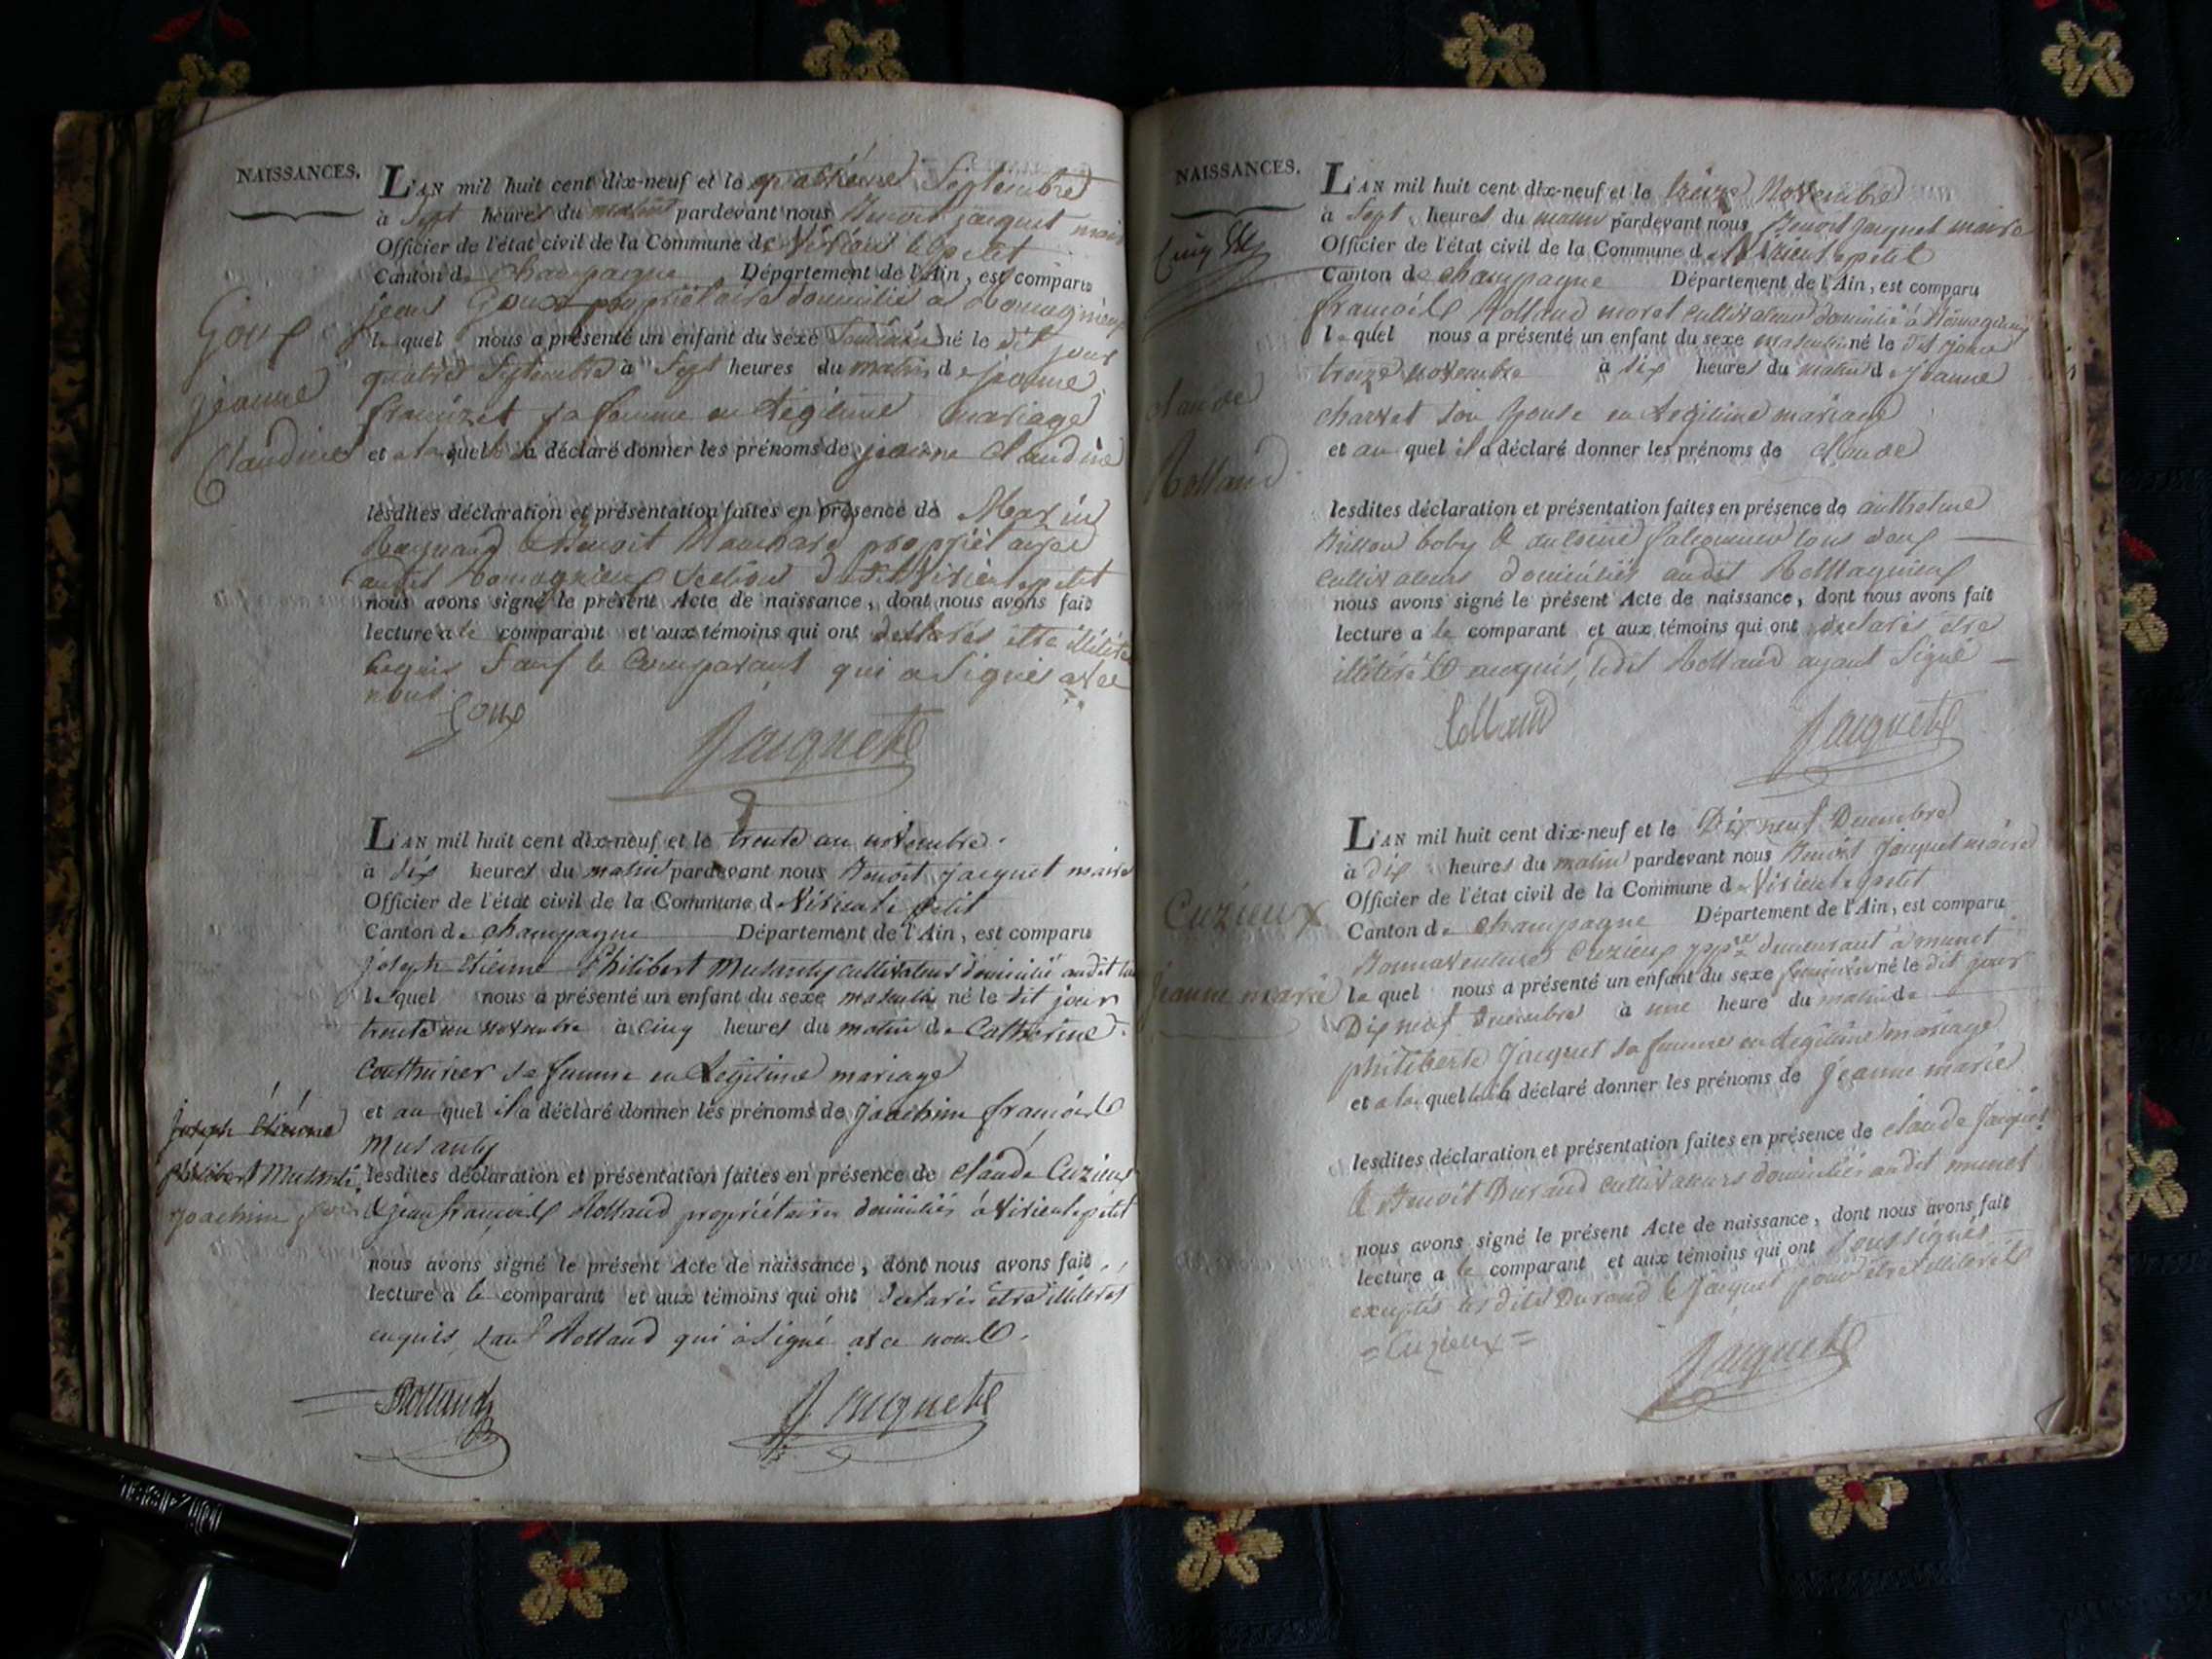 NAISSANCES.
Goux
jeanne
Claudine
L'AN mil huit cent dix-neuf et le quatrième Septembre
à Sept heures du matin pardevant nous Benoit jacquet maire
Officier de l'état civil de la Commune de Virieu le petit
Canton de Champagne Département de l'Ain, est comparu
jean Goux propriétaire domicilié à Romagnieux
lequel nous a présenté un enfant du sexe féminin né le dit jour
quatre Septembre à Sept heures du matin de jeanne
sa femme en Légitime mariage
et a laquelle il a déclaré donner les prénoms de jeanne Claudine
lesdites déclaration et présentation faites en présence de
Benoit propriétaires
audit Romagnieux Section dudit Virieu le petit
nous avons signé le présent Acte de naissance, dont nous avons fait
lecture a le comparant et aux témoins qui ont déclarés être
Sauf le Comparant qui a Signés avec
nous.
Goux
Jacquet
L'AN mil huit cent dix-neuf et le trente un novembre.
à dix heures du matin pardevant nous Benoit jacquet maire
Officier de l'état civil de la Commune de Virieu le petit
Canton de Champagne Département de l'Ain, est comparu
joseph Etienne Philibert Musanty cultivateur domicilié audit
lequel nous a présenté un enfant du sexe masculin né le dit jour
trente un novembre à cinq heures du matin de Catherine
Couthurier sa femme en Légitime mariage
et au quel il a déclaré donner les prénoms de joachim françois
Musanty
joseph étienne
philibert
joachim
lesdites déclaration et présentation faites en présence de Claude Cuzieux
& jean françois Rolland propriétaires domiciliés à Virieu le petit
nous avons signé le présent Acte de naissance, dont nous avons fait
lecture a le comparant et aux témoins qui ont déclarés être illiterés
enquis, sauf Rolland qui a Signé avec nous.
Rolland
Jacquet
NAISSANCES.
Claude
Rolland
L'AN mil huit cent dix-neuf et le treize Novembre
à Sept heures du matin pardevant nous Benoit Jacquet maire
Officier de l'état civil de la Commune de Virieu le petit
Canton de Champagne Département de l'Ain, est comparu
françois Rolland moret cultivateur domicilié à Romagnieux
lequel nous a présenté un enfant du sexe masculin né le dit jour
treize novembre à six heures du matin de jeanne
charvet son Epouse en Légitime mariage
et au quel il a déclaré donner les prénoms de Claude
lesdites déclaration et présentation faites en présence de anthelme
tous deux
cultivateurs domiciliés audit Romagnieux
nous avons signé le présent Acte de naissance, dont nous avons fait
lecture a le comparant et aux témoins qui ont déclarés être
enquis, ledit Rolland ayant Signé
Rolland
Jacquet
Cuzieux
jeanne marie
L'AN mil huit cent dix-neuf et le Dix neuf Decembre
à dix heures du matin pardevant nous Benoit Jacquet maire
Officier de l'état civil de la Commune de Virieu le petit
Canton de Champagne Département de l'Ain, est comparu
Bonnaventure Cuzieux demeurant à munet
lequel nous a présenté un enfant du sexe feminin né le dit jour
Dix neuf Decembre à une heure du matin de
philiberte Jacquet sa femme en Légitime mariage
et a laquelle il a déclaré donner les prénoms de jeanne marie
lesdites déclaration et présentation faites en présence de Claude Jacquet
& Benoit Durand cultivateurs domiciliés audit munet
nous avons signé le présent Acte de naissance, dont nous avons fait
lecture a le comparant et aux témoins qui ont Soussignés
exceptés les dits Durand & Jacquet pour être illiterés
= Cuzieux =
Jacquet